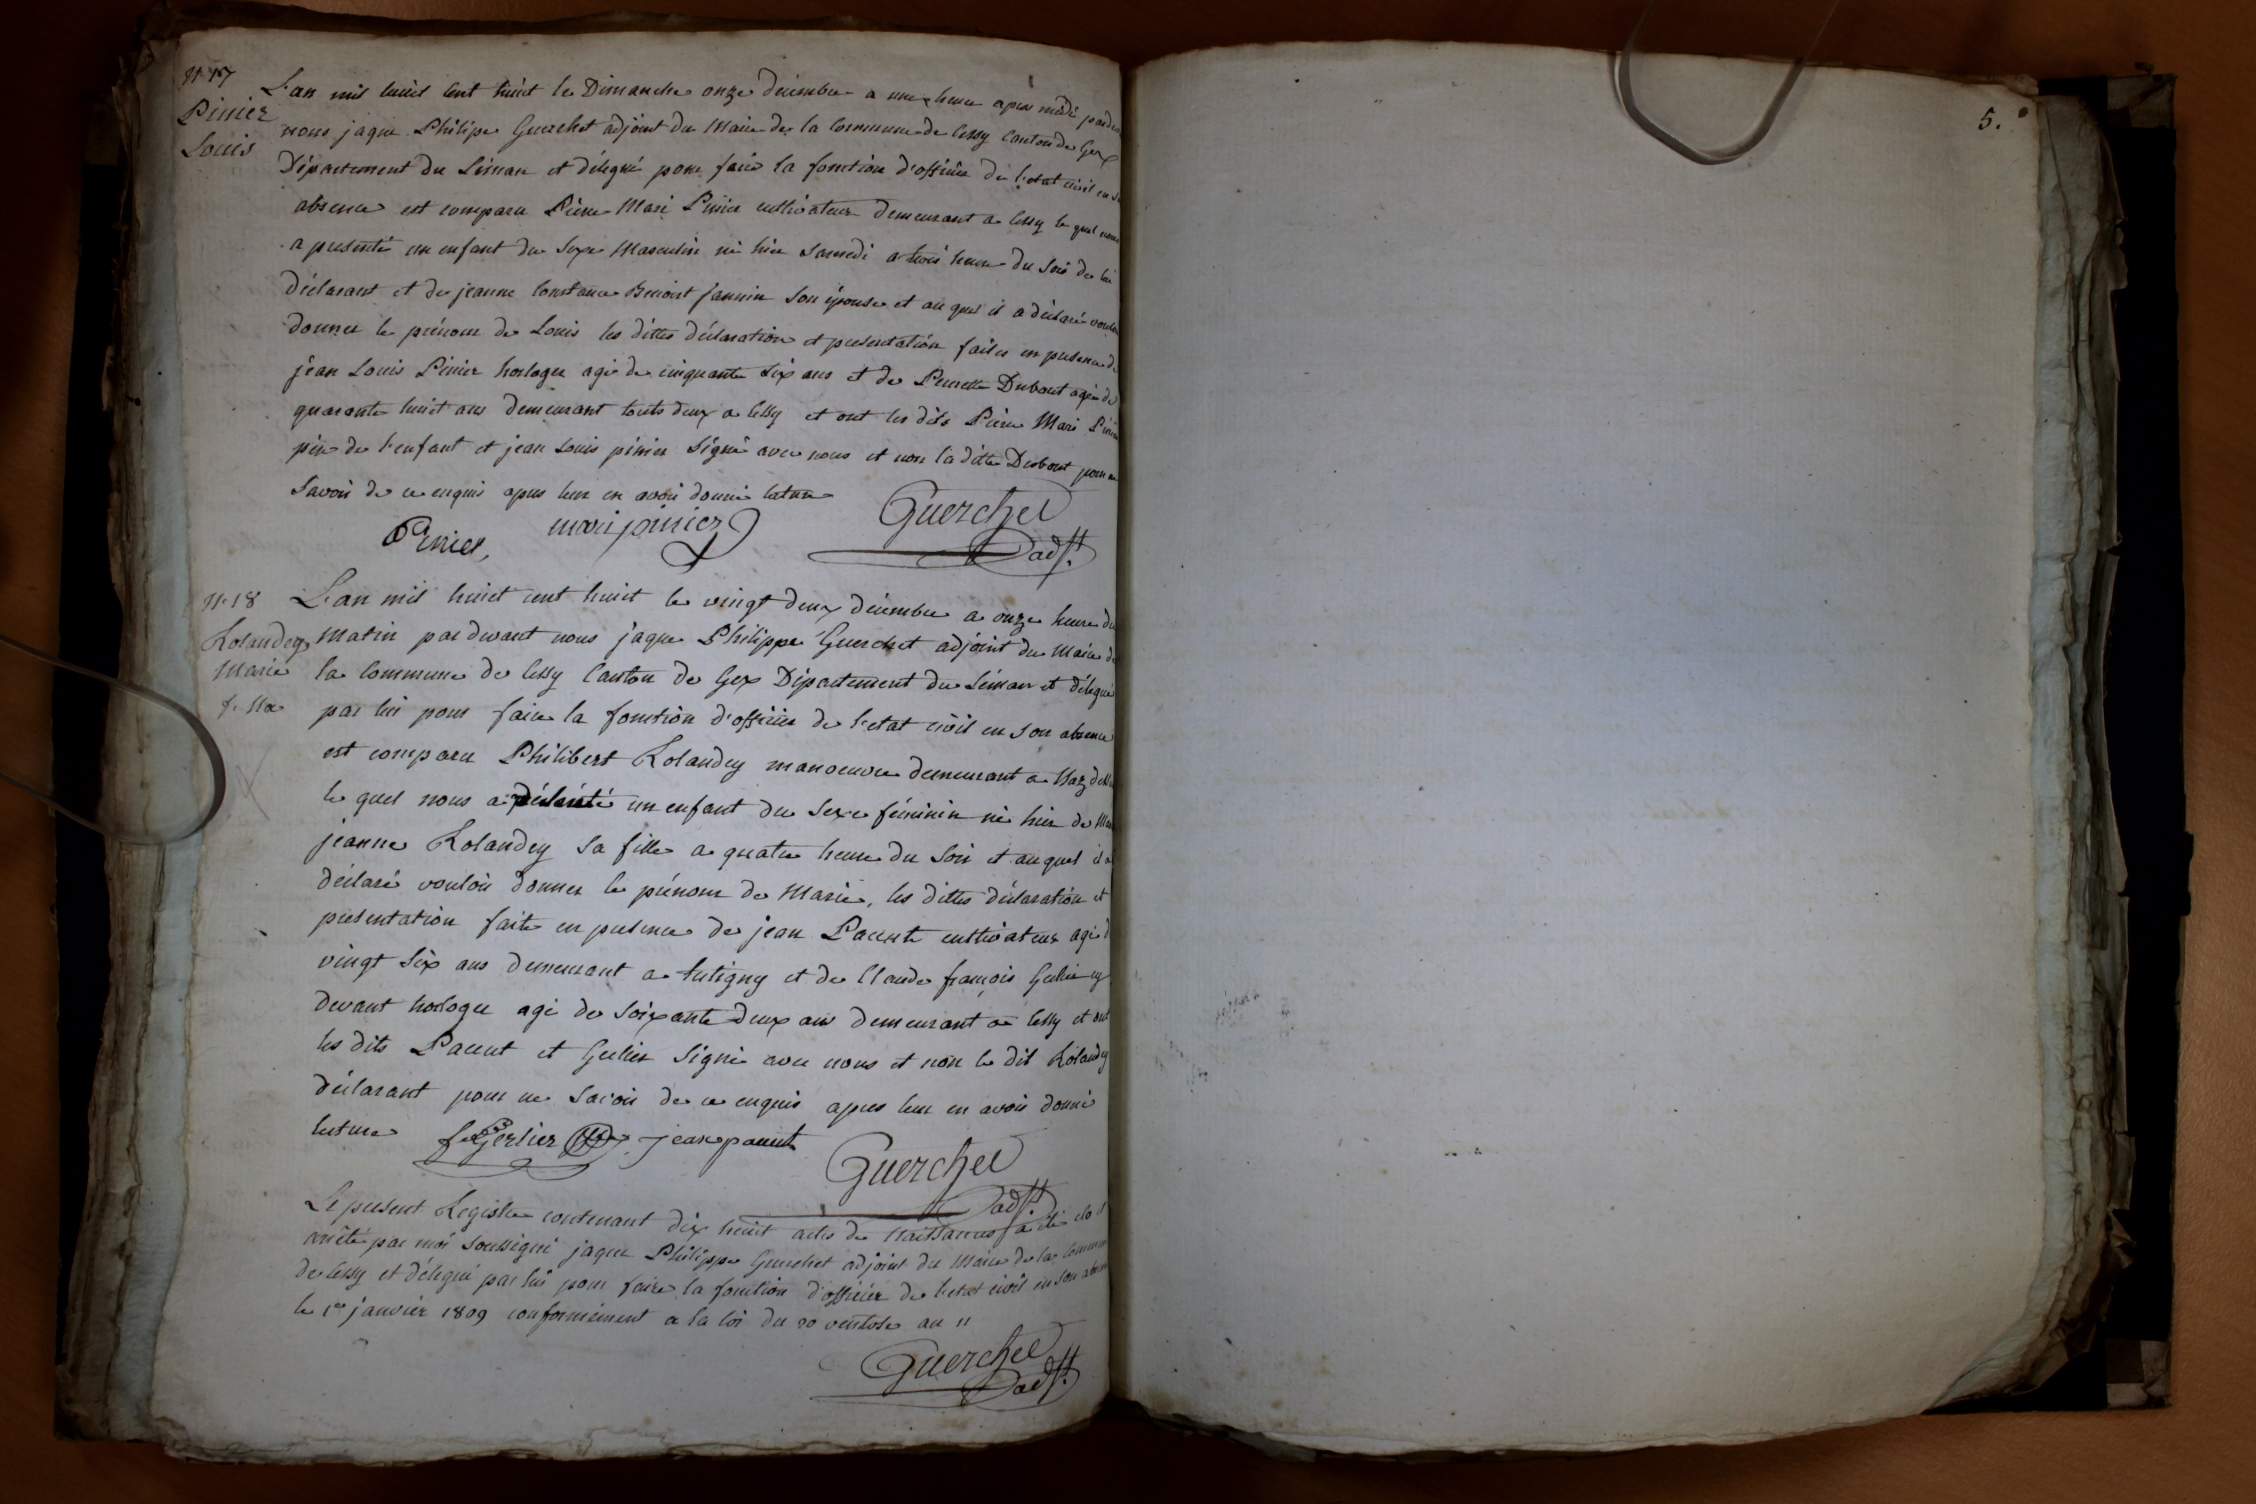 N. 17
Pinier
Louis
L'an mil huit cent huit le Dimanche onze décembre a une heure apres midi pardevant
nous jaque Philipe Guerchet adjoint du Maire de la Commune de Cessy Canton de Gex
Département du Léman et délegué pour faire la fonction d'officier de l'etat civil en son
absence est comparu Pierre Mari Pinier cultivateur demeurant a Cessy le quel nous
a presenté un enfant du Sexe Masculin né hier Samedi a trois heure du Soir de lui
déclarant et de jeanne Constance Benoist jannin Son épouse et au quel il a déclaré vouloir
donner le prénom de Louis les dittes déclaration et presentation faites en presence de
jean Louis Pinier horloger agé de cinquante Six ans et de Pernette Dubout agée de
quarante huit ans demeurant touts deux a Cessy et ont les dits Pierre Mari Pinier
père de l'enfant et jean Louis pinier Signé avec nous et non la ditte Dubout pour ne
Savoir de ce enquis apres leur en avoir donné lecture
Pinier, mari pinier Guerchet
adjt.
N. 18
Rolandey
Marie
L'an mil huit cent huit le vingt deux décembre a onze heure du
Matin par devant nous jaque Philippe Guerchet adjoint du Maire de
la Commune de Cessy Canton de Gex Département du Léman et délegué
par lui pour faire la fonction d'officier de l'etat civil en son absence
est comparu Philibert Rolandey manoeuvre demeurant a
le quel nous a présenté un enfant du Sexe féminin né hier de
jeanne Rolandey Sa fille a quatre heure du Soir et auquel il a
déclaré vouloir donner le prénom de Marie, les dittes déclaration et
presentation faite en presence de jean Pacent cultivateur agé de
vingt Six ans demeurant a Tutigny et de Claude françois Gerlier cy
devant horloger agé de Soixante deux ans demeurant a Cessy et ont
les dits Pacent et Gerlier Signé avec nous et non le dit Rolandey
déclarant pour ne Savoir de ce enquis apres leur en avoir donné
lecture Gerlier jean pacent
Guerchet
adjt.
Le present Registre contenant dix huit actes de Naissances a été clos et
arrêté par moi Soussigné jaque Philippe Guerchet adjoint du Maire de la Commune
de Cessy et délegué par lui pour faire la fonction d'officier de l'etat civil en son absence
le 1er janvier 1809 conformément a la loi du 20 ventose an 11
Guerchet
adjt.
5.